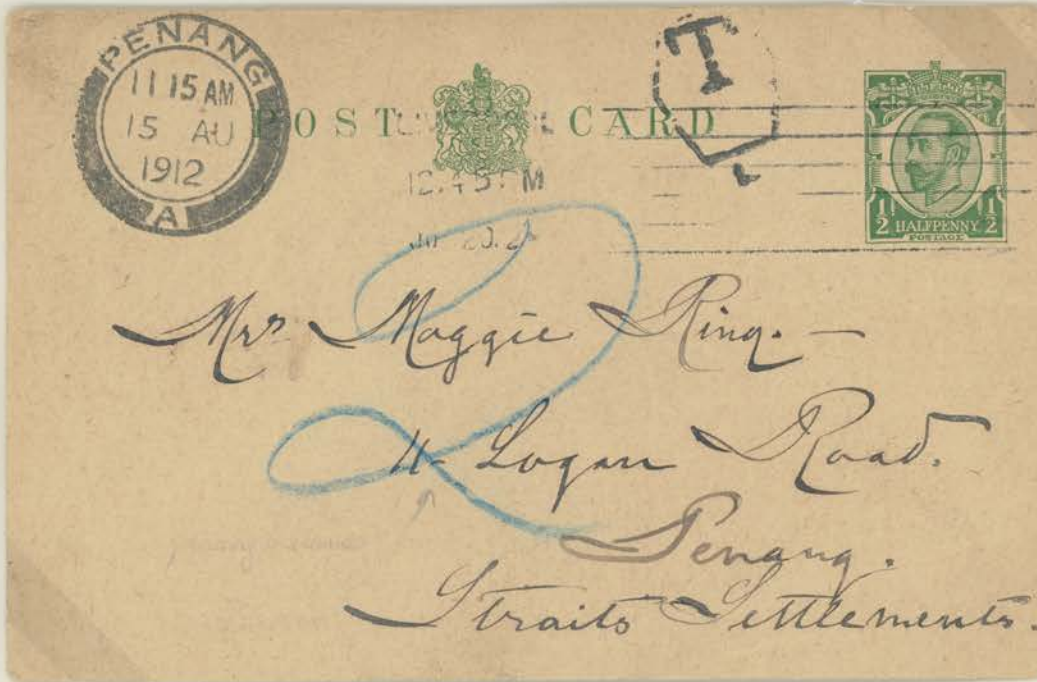 PENANG
11 15 AM
15 AU
1912
A
T
POST CARD
12.45 PM
½ HALFPENNY ½
POSTAGE
Mrs Maggie Ring. —
4 Logan Road.
Penang.
Straits Settlements.
2